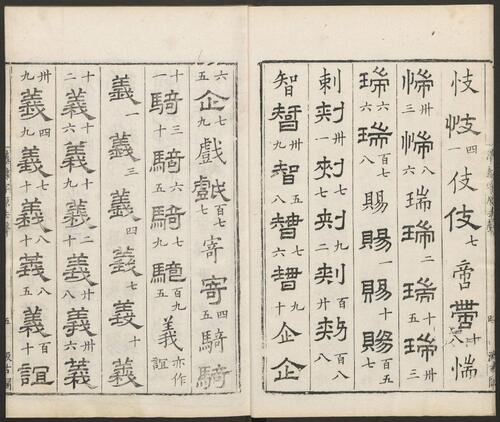 忮忮四一伎伎七啻啻惴
惴卅三惴八六瑞瑞二瑞十五瑞卅三
瑞六六瑞七八百七賜賜一賜十賜百五七
刺刾卅一刾七刾九二刾百廿刾百八八
智智卅九智七八智七六智九十企企
六五企七九戲戲百七七寄寄四五騎騎
十一騎三十騎六五騎七九騎百九五義亦作誼
義一義三義四義七義十義
十二義十六義十九義二十義廿八義卅六義
卅九義四九義七十義八十義八五義百十誼